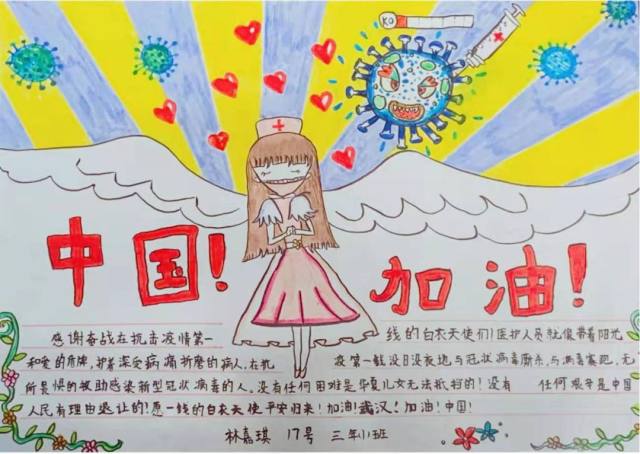 中国！加油！
感谢奋战在抗击疫情第一线的白衣天使们！医护人员就像带着阳光
和爱的盾牌，护着深受病痛折磨的病人，在抗疫第一线没日没夜地与冠状病毒厮杀，与病毒赛跑，无
所畏惧的救助感染新型冠状病毒的人，没有任何困难是华夏儿女无法抵挡的！没有任何艰辛是中国
人民有理由退让的！愿一线的白衣天使平安归来！加油！武汉！加油！中国！
林嘉琪 17号 三年11班